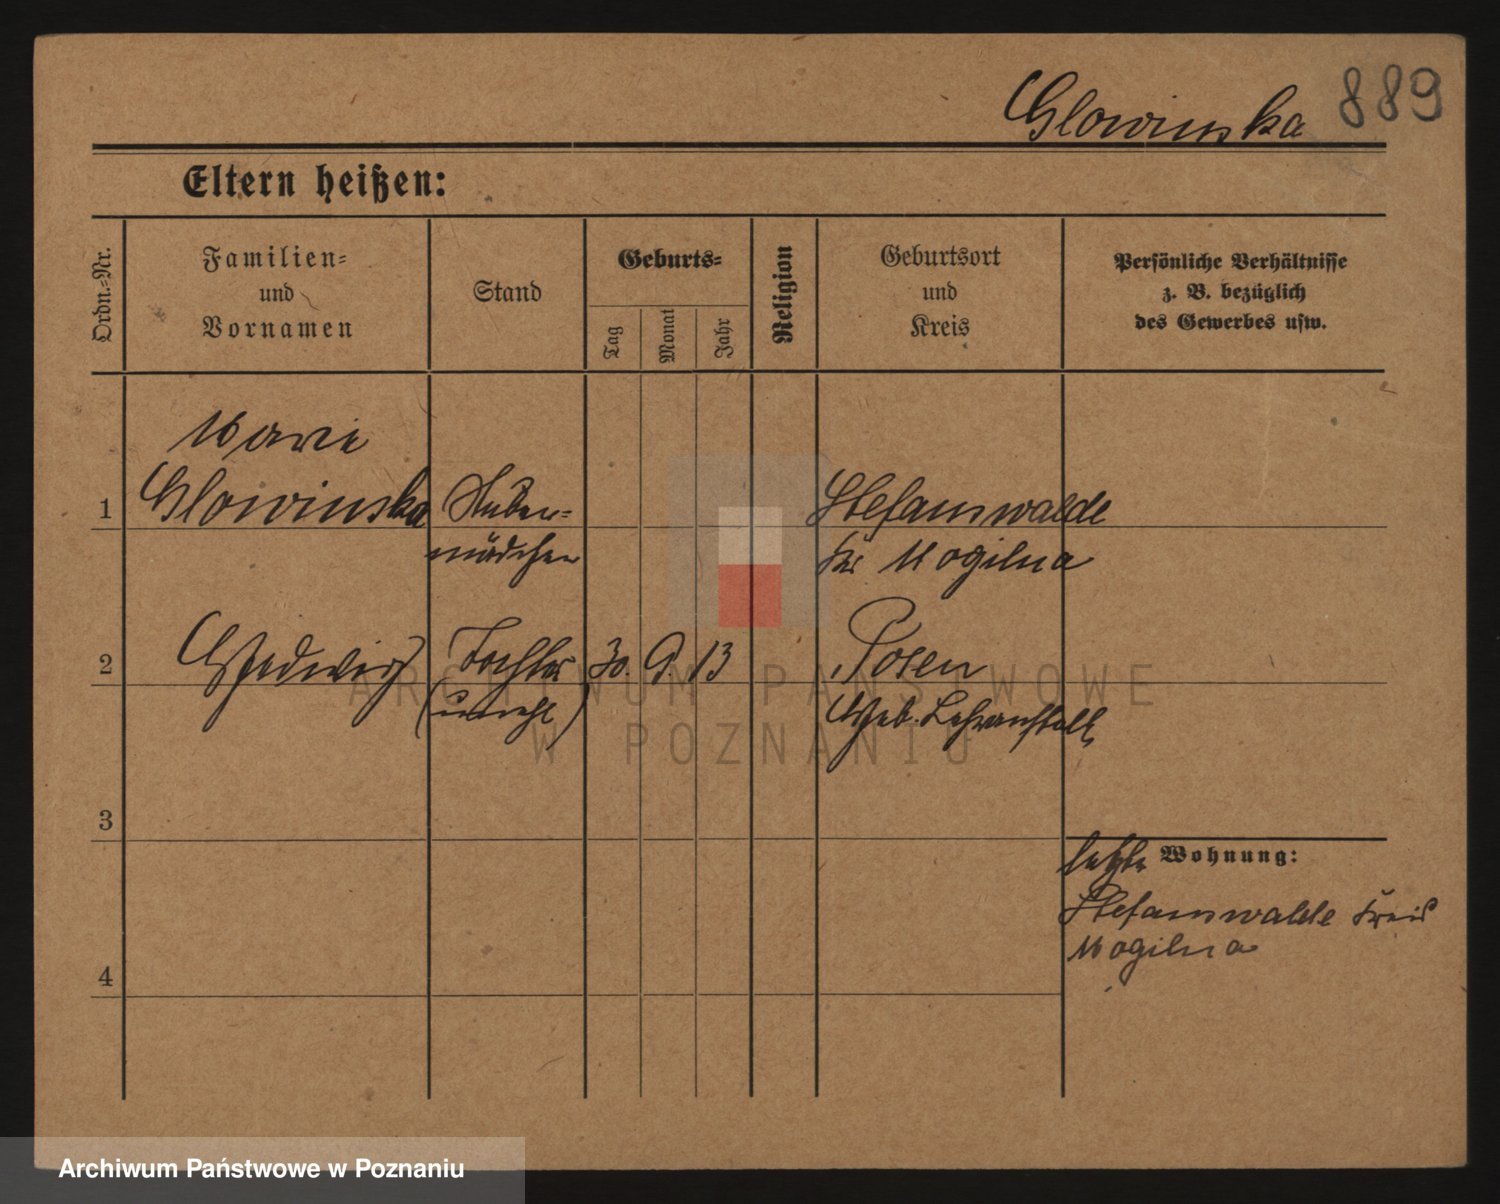 Glowinska 889
Eltern heißen:
Ordn.-Nr.
Familien-
und
Vornamen
Stand
Geburts-
Tag
Monat
Jahr
Religion
Geburtsort
und
Kreis
Persönliche Verhältnisse
z. B. bezüglich
des Gewerbes usw.
Marie
1 Glowinska Stuben- Stefanswalde
mädchen Kr Mogilna
2 Hedwig Tochter 30. 9. 13 Posen
(unehl) Heb. Lehranstalt
ARCHIWUM PAŃSTWOWE
W POZNANIU
3
letzte Wohnung:
Stefanswalde Kreis
Mogilna
4
Archiwum Państwowe w Poznaniu